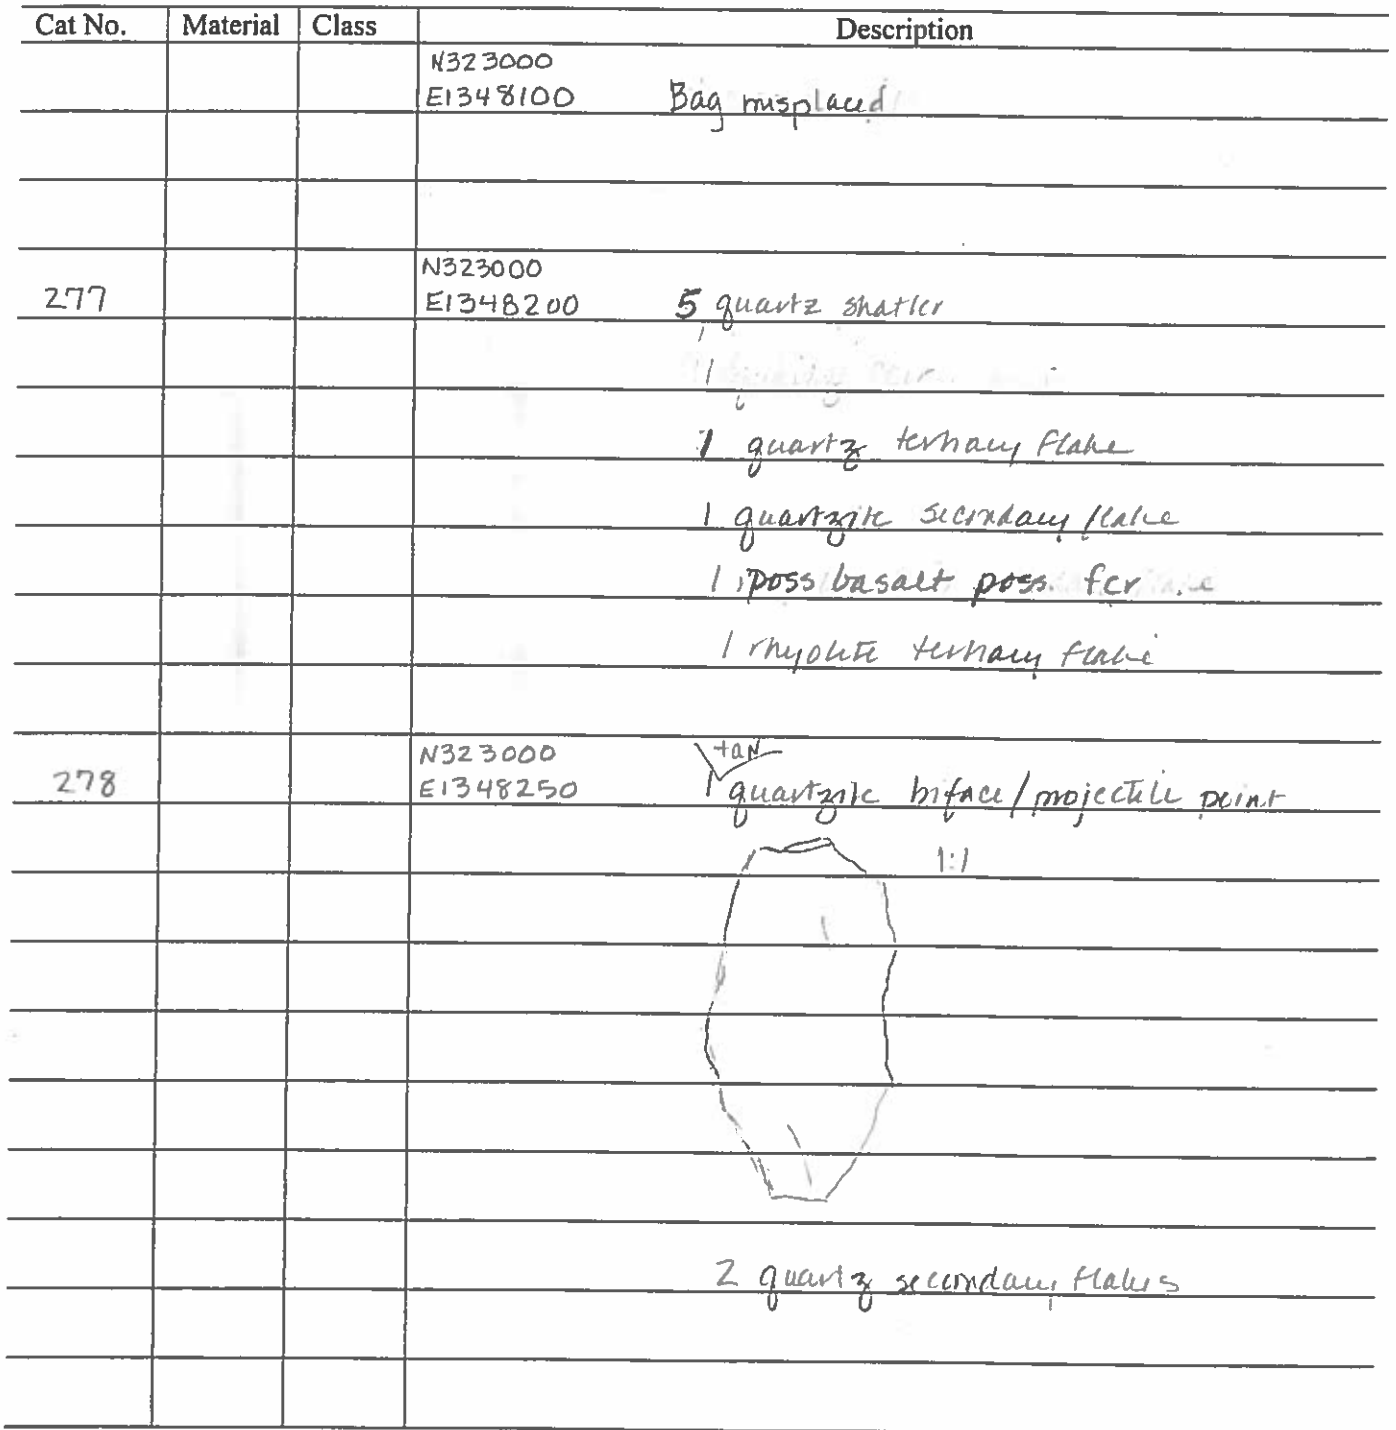 Cat No. Material Class Description
N323000
E1348100 Bag misplaced
N323000
277 E1348200 5 quartz shatter
1
1 quartz tertiary flake
1 quartzite secondary flake
1 poss basalt poss. fcr
1 rhyolite tertiary flake
N323000 tan
278 E1348250 1 quartzite biface/projectile point
1:1
2 quartz secondary flakes